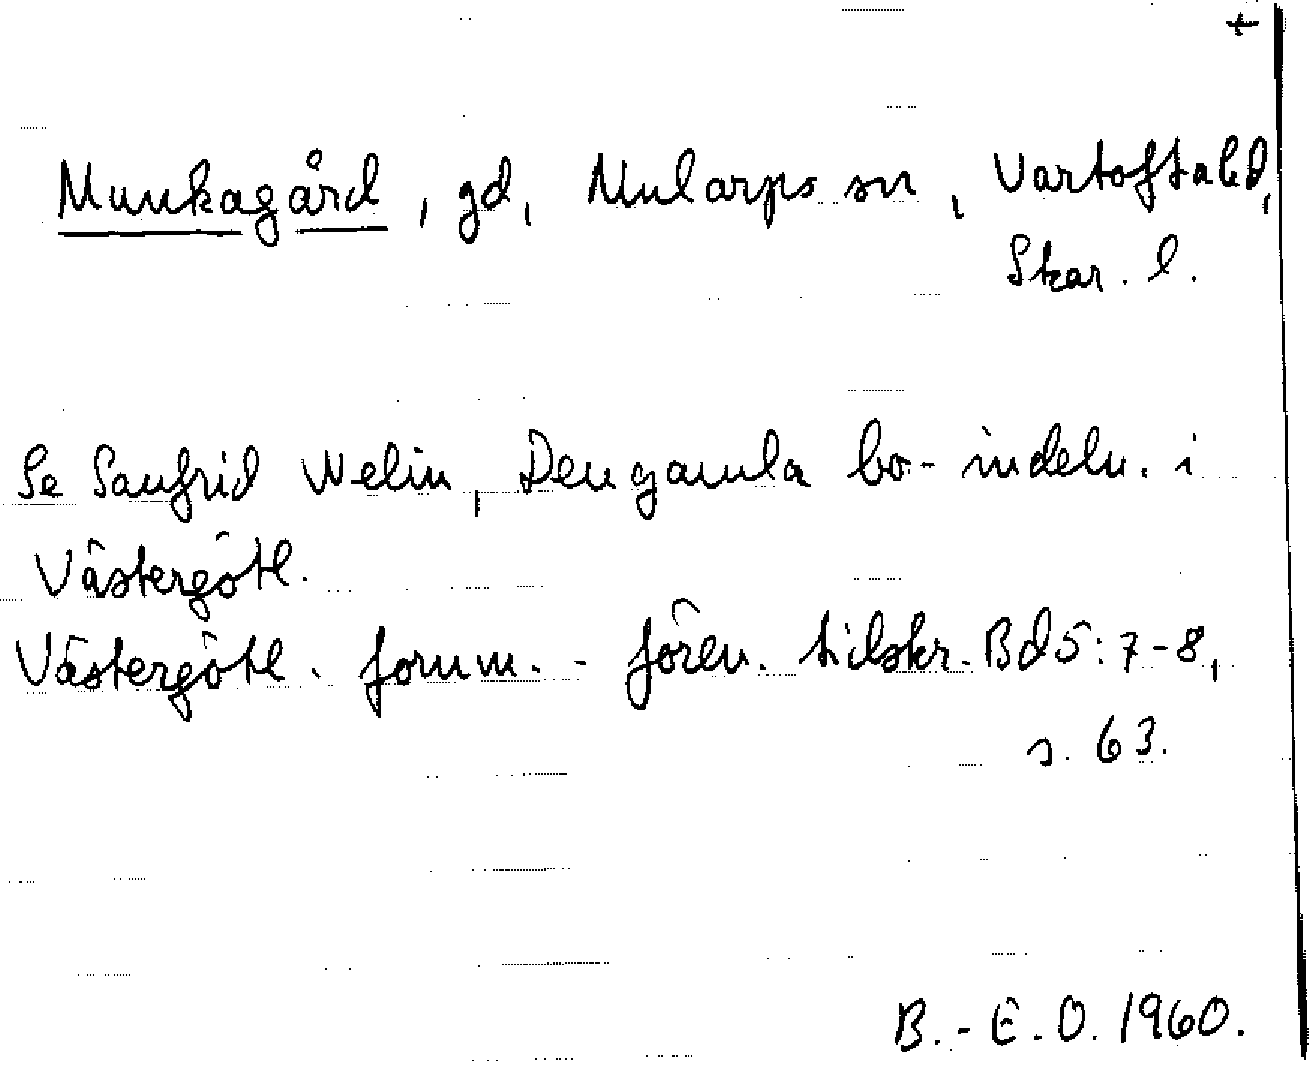 +
Munkagård, gd, Mularps sn, Vartofta hd,
Skar. l.
Se Sanfrid Welin, Den gamla bo-indeln. i
Västergötl.
Västergötl. fornm.-fören. tidskr. Bd 5: 7-8,
s. 63.
B.-E. O. 1960.